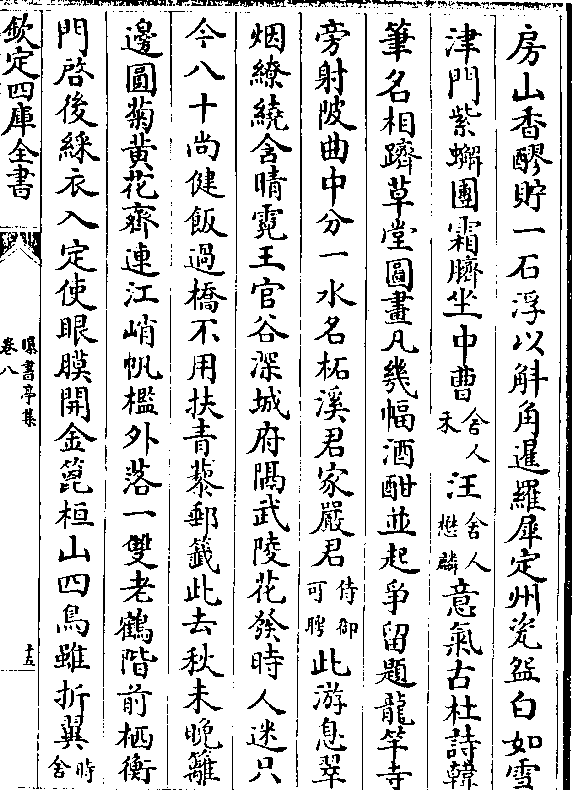 房山香醪貯一石浮以斛角暹羅犀定州瓷盌白如雪
津門紫蠏團霜臍坐中曹舍人禾汪舍人懋麟意氣古杜詩韓
筆名相躋草堂圖畫凡幾幅酒酣並起爭留題龍竿寺
旁射陂曲中分一水名柘溪君家嚴君侍御可聘此游息翠
烟繚繞含晴霓王官谷深城府隔武陵花發時人迷只
今八十尚健飯過橋不用扶青藜郵籤此去秋未晚籬
邊圓菊黃花齊連江峭帆檻外落一雙老鶴階前栖衡
門啓後綵衣入定使眼膜開金篦桓山四鳥雖折翼時舍
欽定四庫全書
曝書亭集
卷八
十五